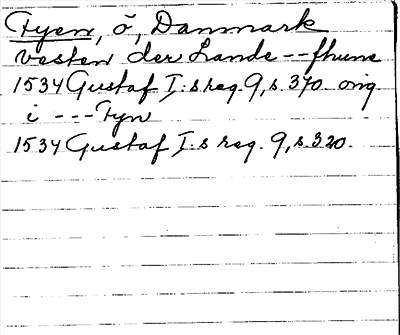 Fyen, ö, Danmark
vesten der Lande -- fhune
1534 Gustaf I:s reg. 9, s. 370. orig.
i --- Fyn
1534 Gustaf I:s reg. 9, s. 320.